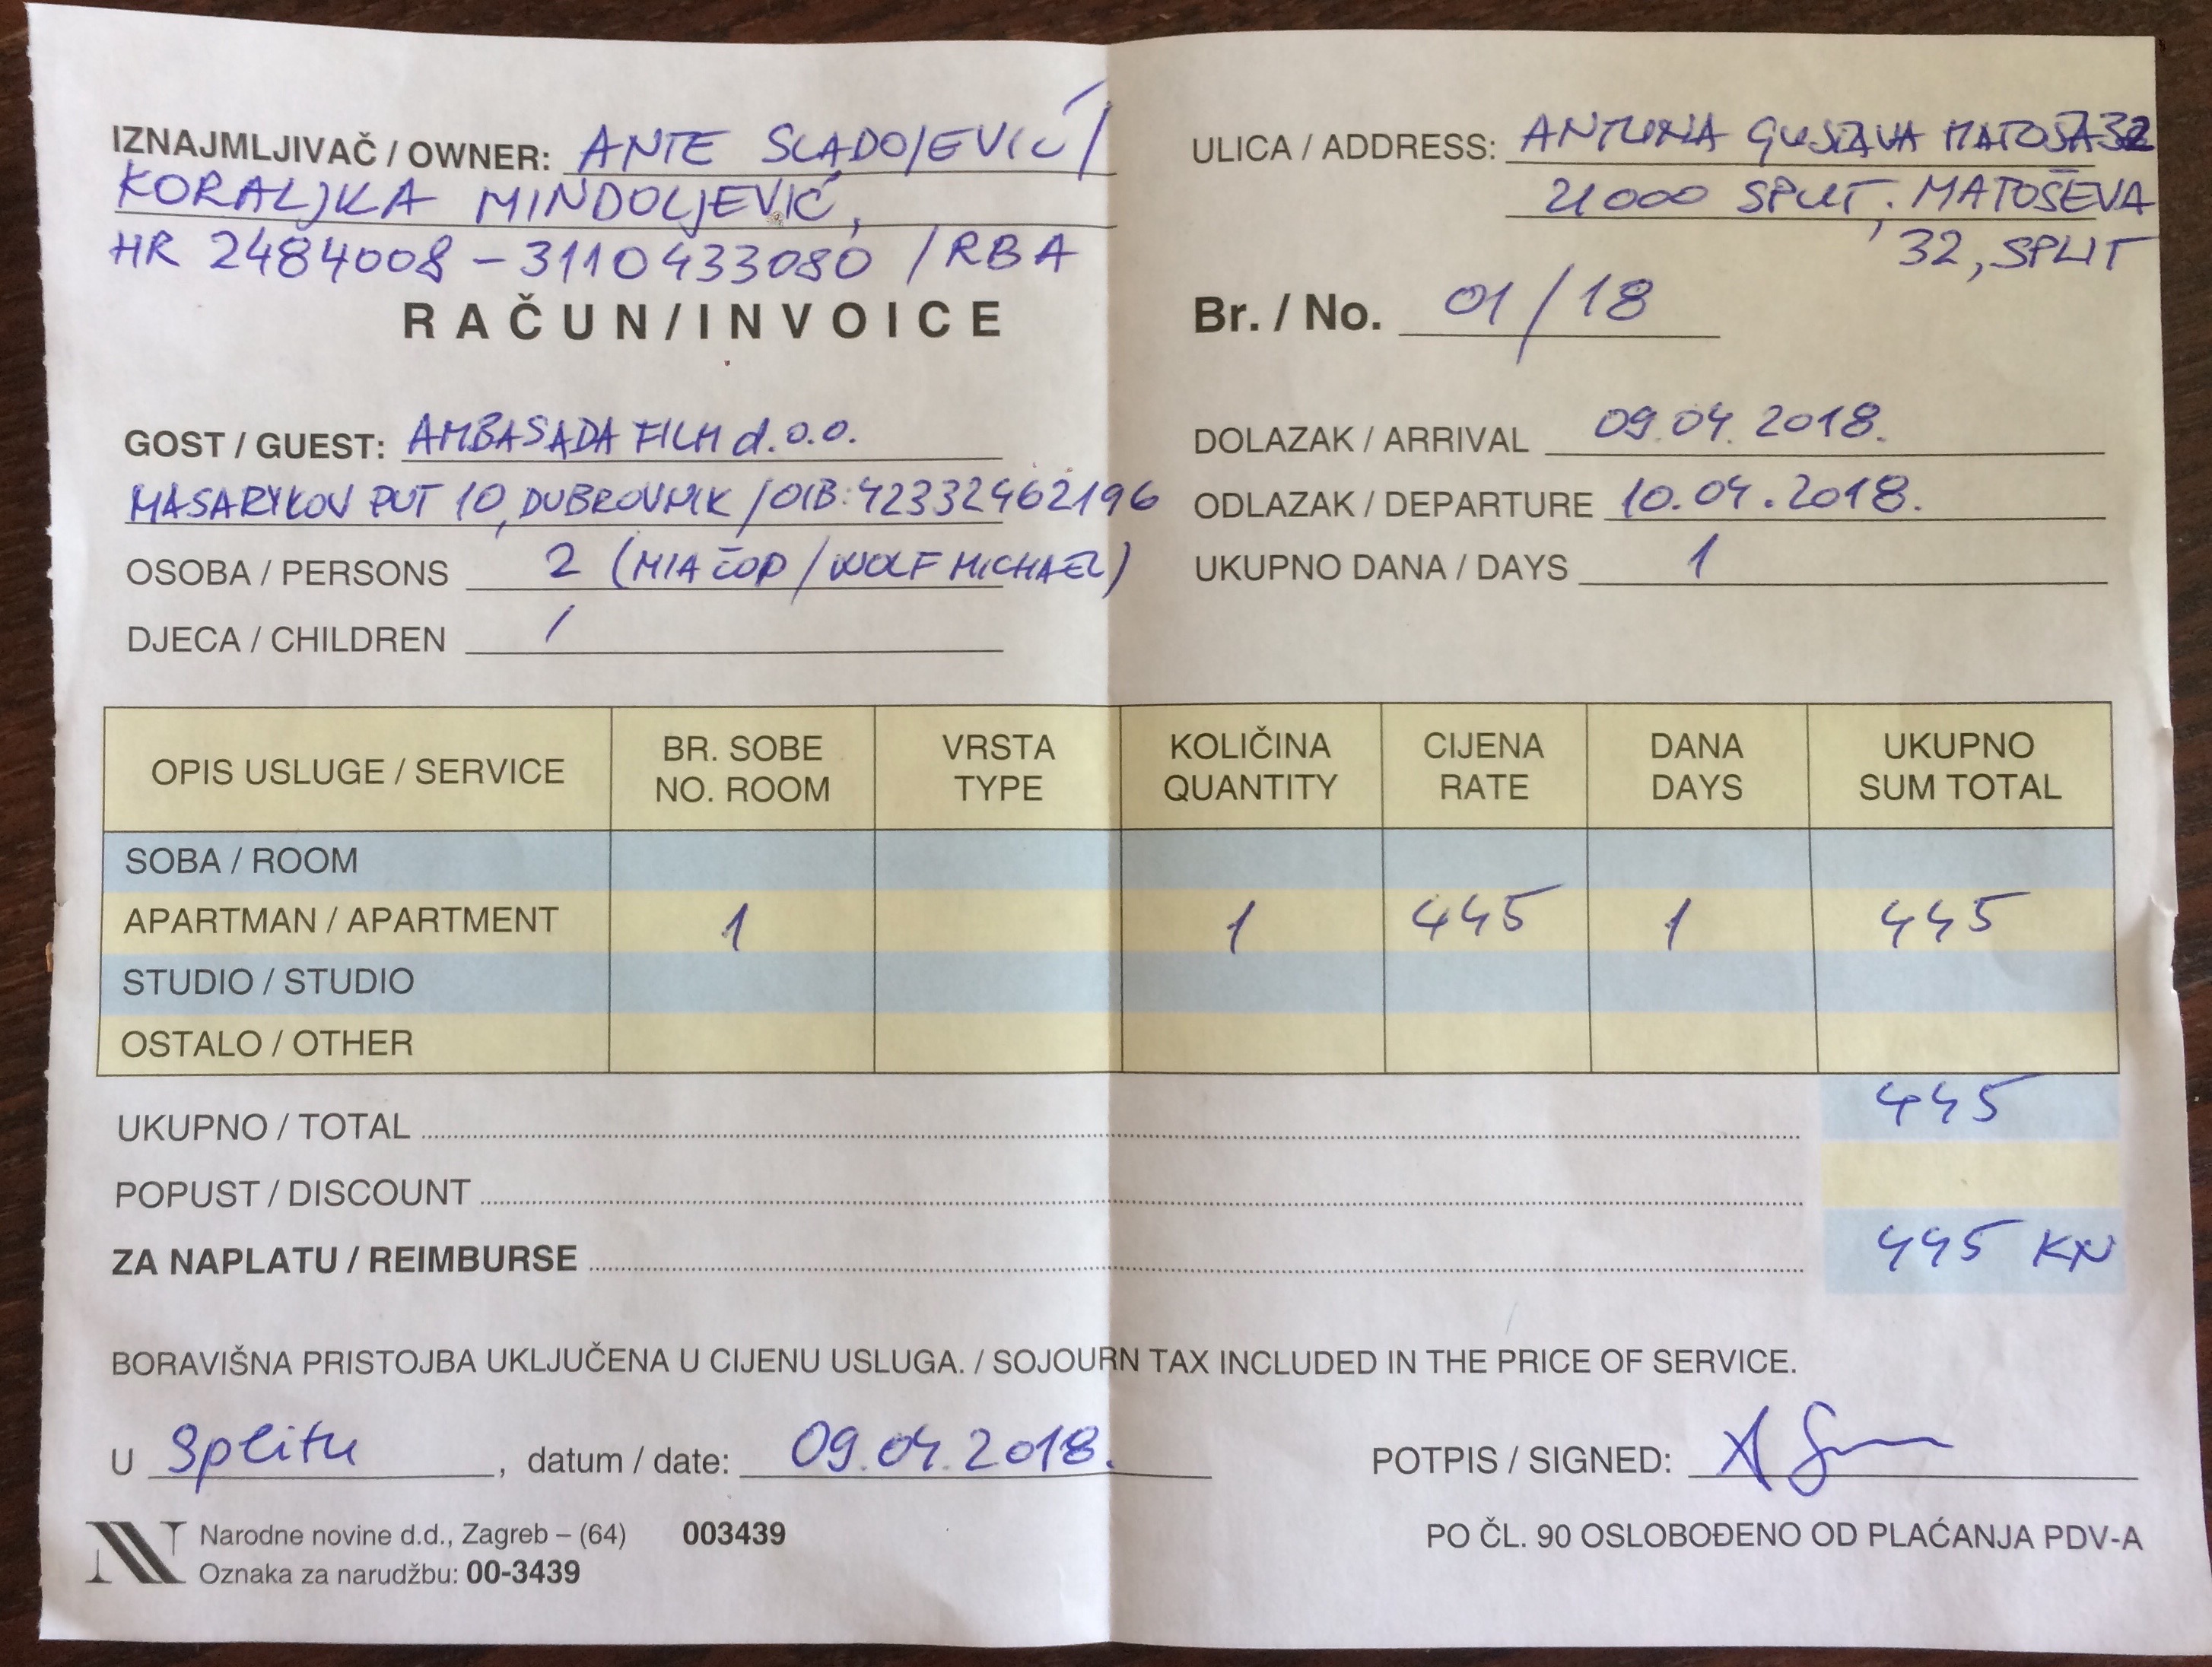 IZNAJMLJIVAČ / OWNER: ANTE SLADOJEVIĆ /
KORALJKA MINDOLJEVIĆ,
HR 2484008 - 3110433080 / RBA
ULICA / ADDRESS: ANTUNA GUSTAVA MATOŠA 32
21000 SPLIT, MATOŠEVA
32, SPLIT
RAČUN/INVOICE
Br. / No. 01/18
GOST / GUEST: AMBASADA FILM d.o.o.
MASARYKOV PUT 10, DUBROVNIK / OIB: 42332462196
OSOBA / PERSONS 2 (MIA ČOP / WOLF MICHAEL)
DJECA / CHILDREN /
DOLAZAK / ARRIVAL 09.04.2018.
ODLAZAK / DEPARTURE 10.04.2018.
UKUPNO DANA / DAYS 1
OPIS USLUGE / SERVICE BR. SOBE NO. ROOM VRSTA TYPE KOLIČINA QUANTITY CIJENA RATE DANA DAYS UKUPNO SUM TOTAL
SOBA / ROOM
APARTMAN / APARTMENT 1 1 445 1 445
STUDIO / STUDIO
OSTALO / OTHER
UKUPNO / TOTAL 445
POPUST / DISCOUNT
ZA NAPLATU / REIMBURSE 445 KN
BORAVIŠNA PRISTOJBA UKLJUČENA U CIJENU USLUGA. / SOJOURN TAX INCLUDED IN THE PRICE OF SERVICE.
U Splitu, datum / date: 09.04.2018.
POTPIS / SIGNED:
Narodne novine d.d., Zagreb – (64) 003439
Oznaka za narudžbu: 00-3439
PO ČL. 90 OSLOBOĐENO OD PLAĆANJA PDV-A